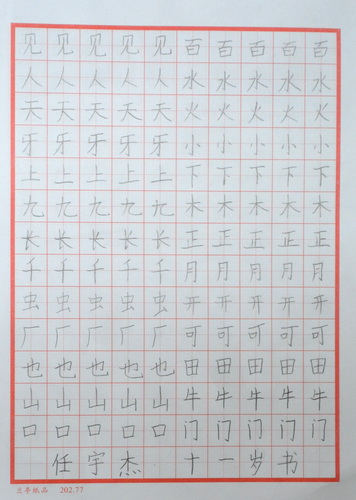 见见见见见百百百百百
人人人人人水水水水水
天天天天天火火火火火
牙牙牙牙牙小小小小小
上上上上上下下下下下
九九九九九木木木木木
长长长长长正正正正正
千千千千千月月月月月
虫虫虫虫虫开开开开开
厂厂厂厂厂可可可可可
也也也也也田田田田田
山山山山山牛牛牛牛牛
口口口口口门门门门门
任宇杰 十一岁书
三春纸品 202.77